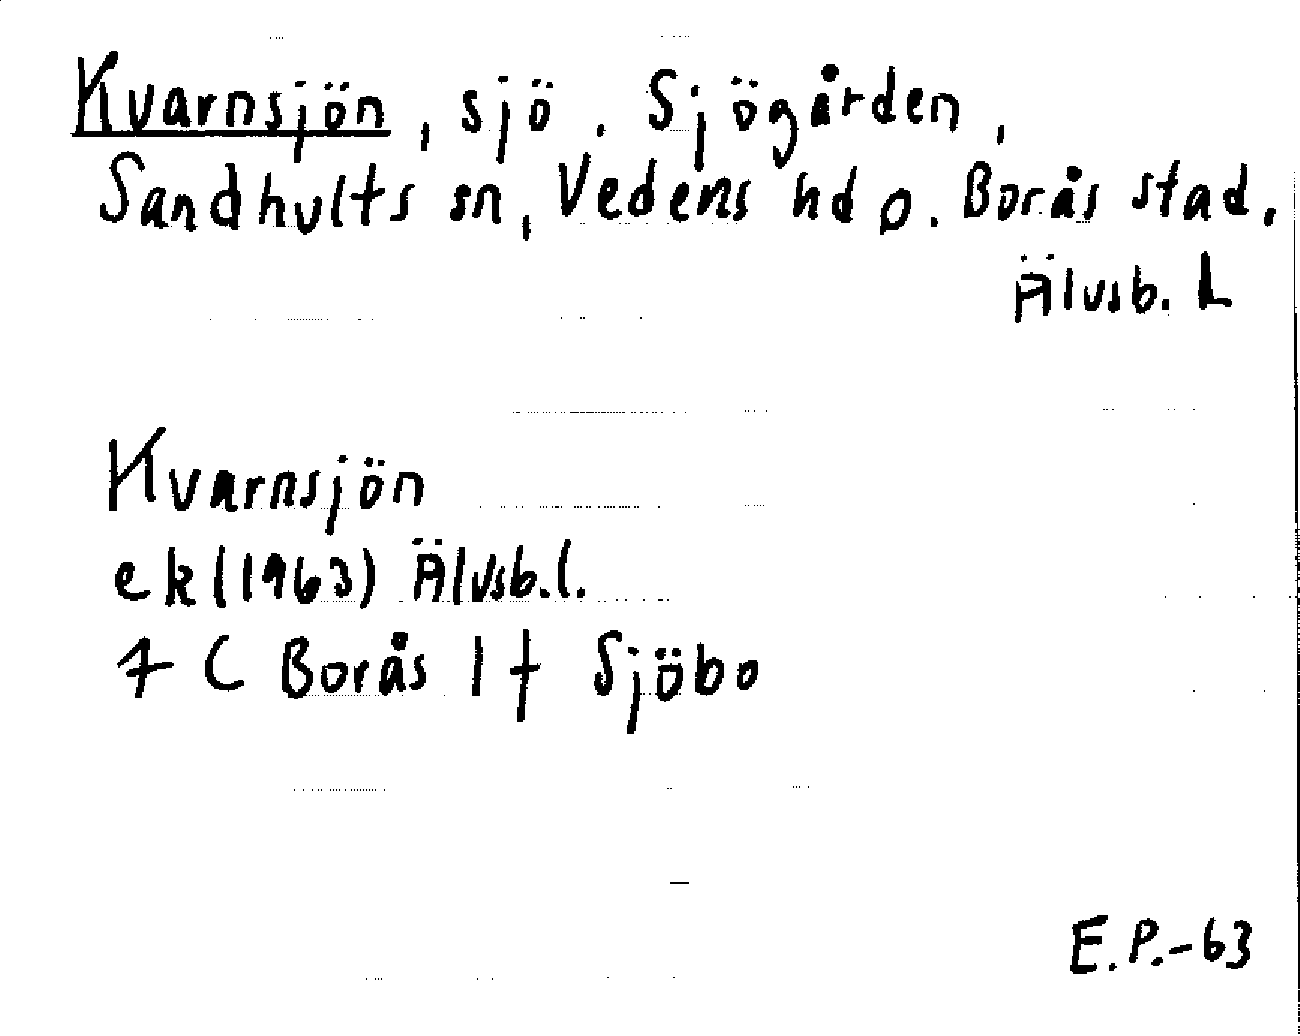 Kvarnsjön, sjö. Sjögården,
Sandhults sn, Vedens hd o. Borås stad.
Älvsb. L
Kvarnsjön
ek (1963) Älvsb.l.
7 C Borås 1 f Sjöbo
E.P.-63